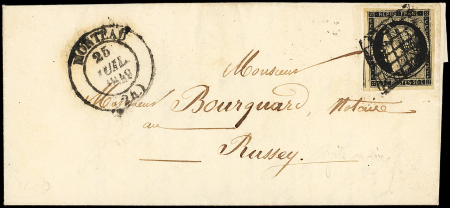 MORTEAU
25
JUIL.
1849
(24)
REPUB. FRANC.
Monsieur
Monsieur Bourquard, Notaire
au
Russey.